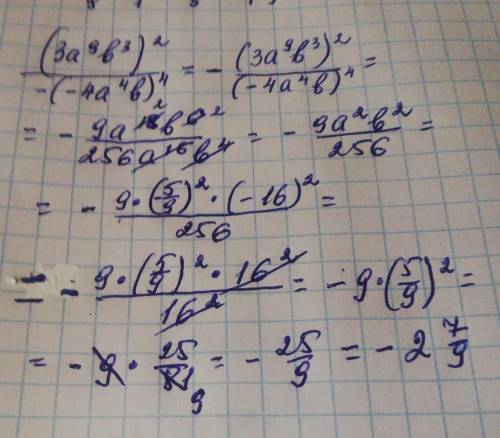 (3a⁹b³)² / -(-4a⁴b)⁴ = - (3a⁹b³)² / (-4a⁴b)⁴ =
= - 9a¹⁸ ² b⁶ ² / 256a¹⁶b⁴ = - 9a²b² / 256 =
= - 9·(-5/9)²·(-16)² / 256 =
= - 9·(5/9)²·16² / 16² = - 9·(5/9)² =
= - 9 · 25/81 9 = - 25/9 = - 2 7/9